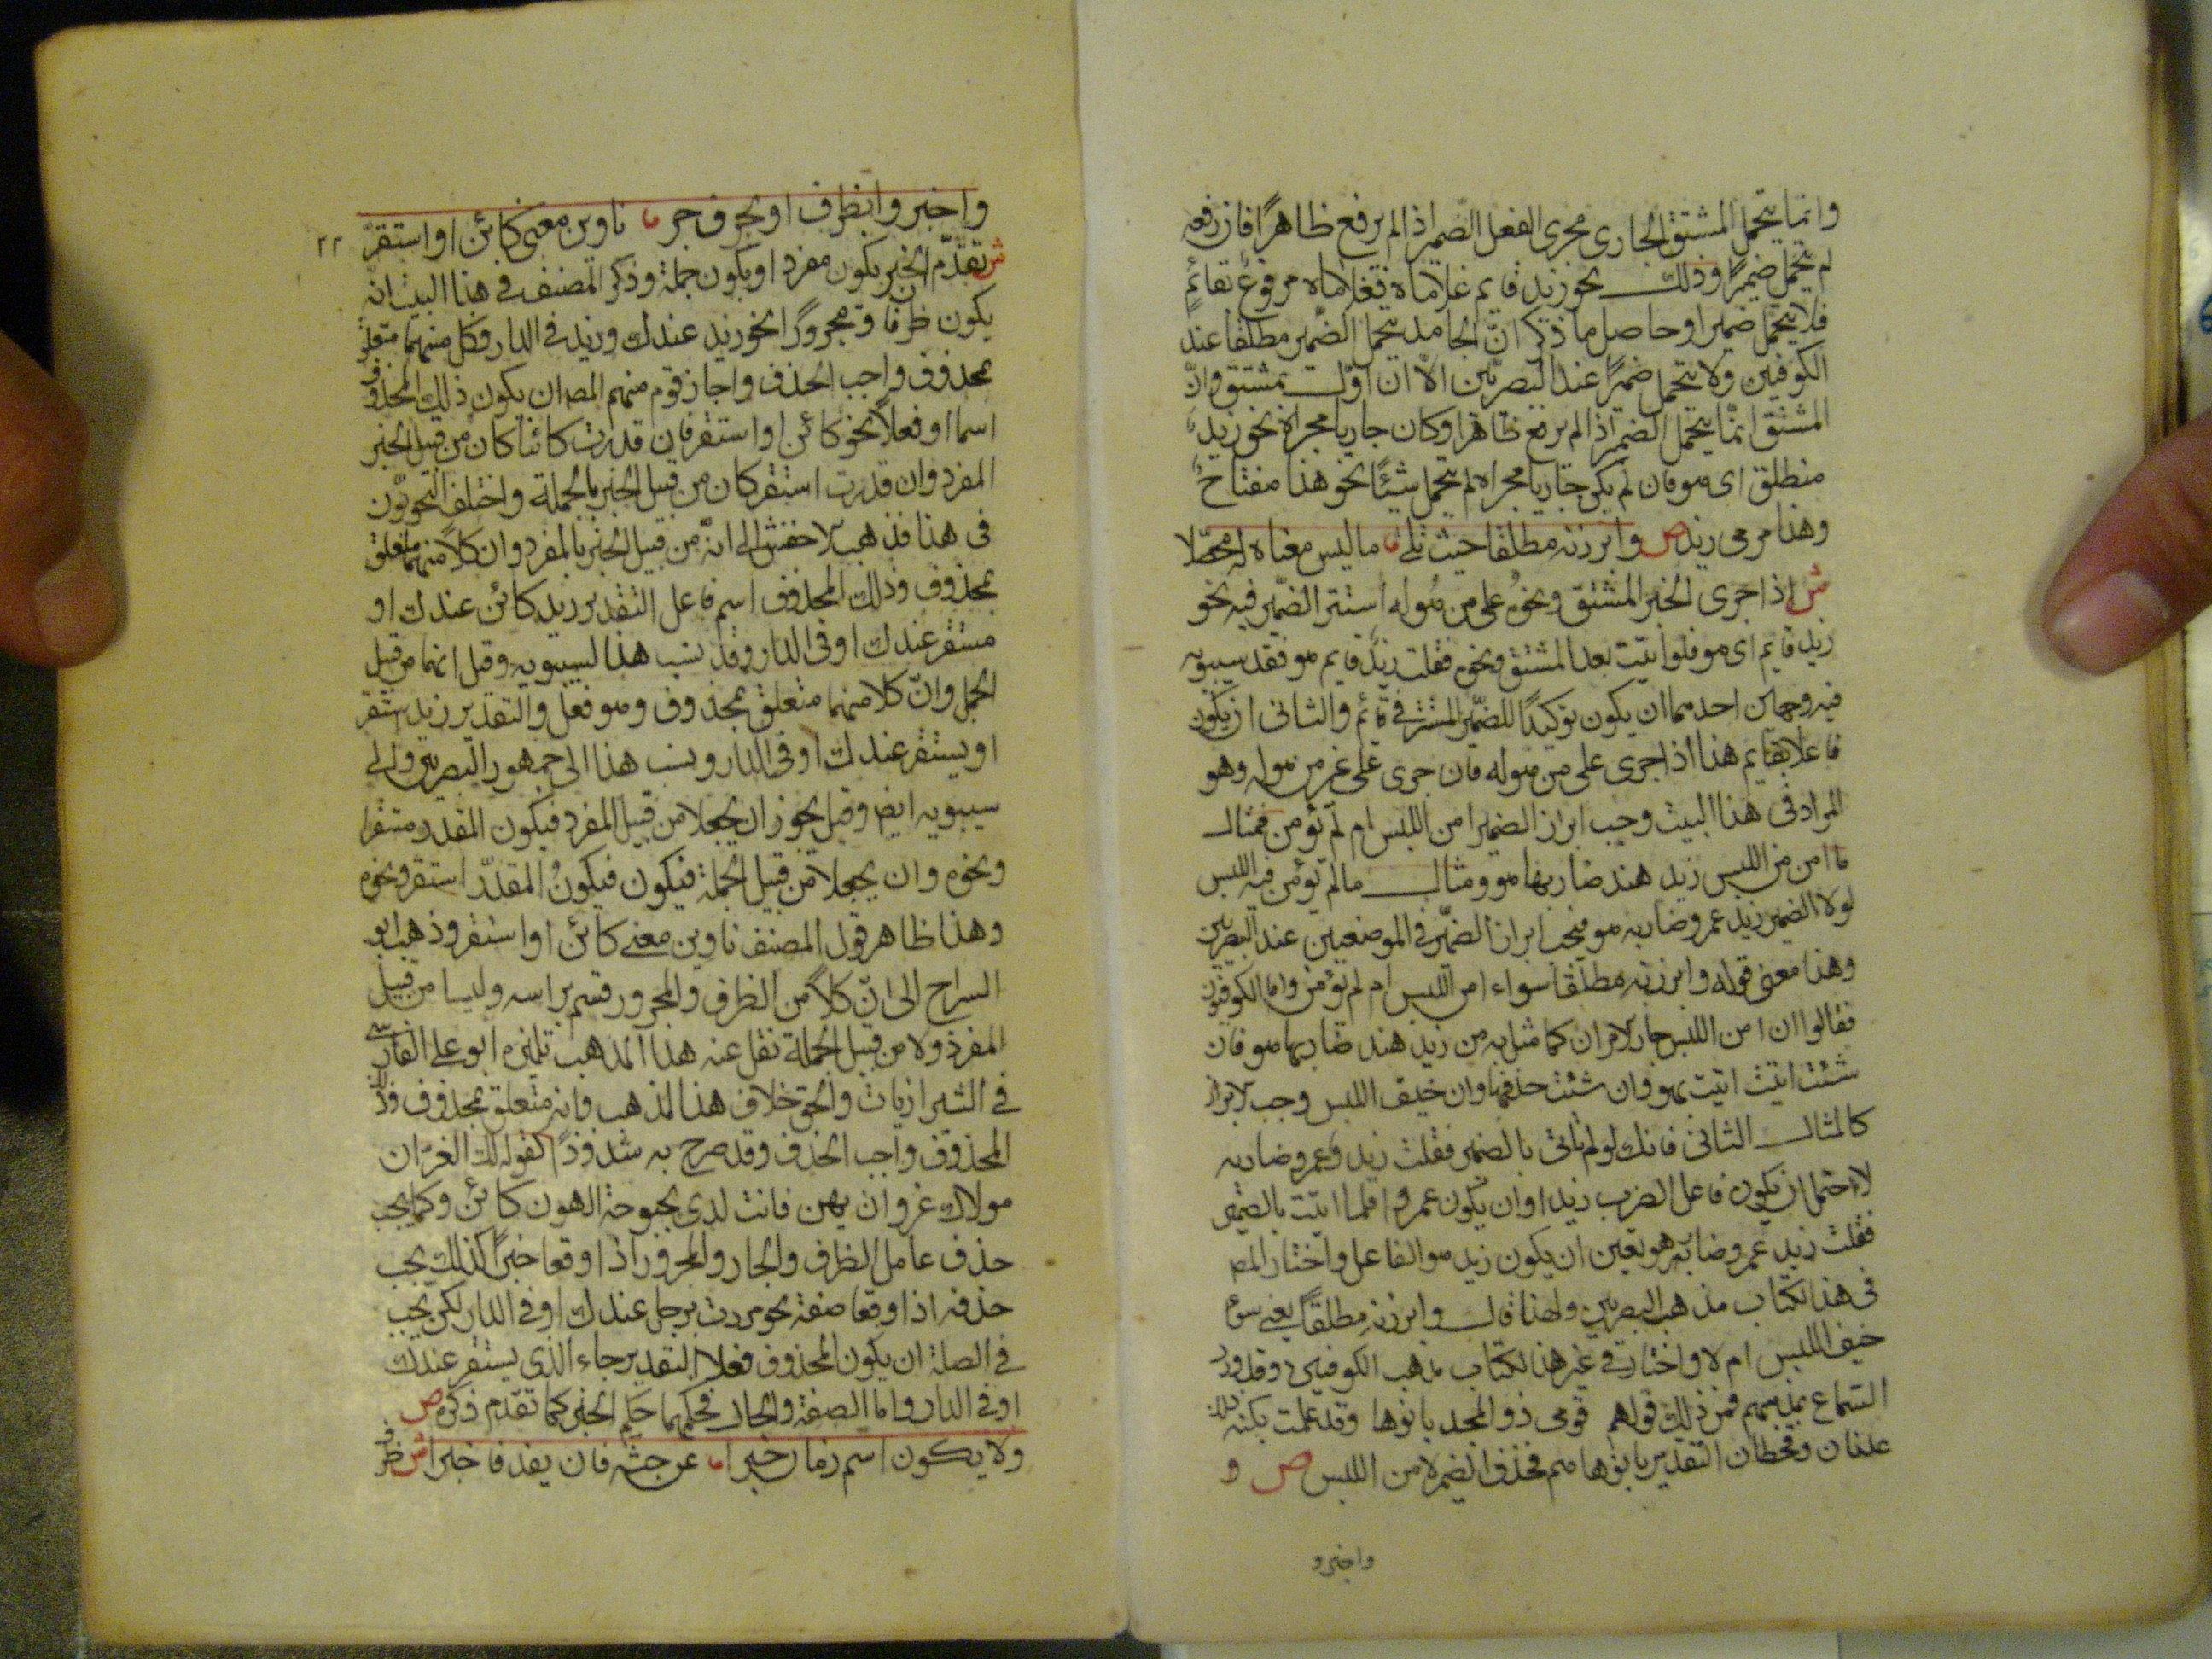 وانما يتحمل المشتق الجارى مجرى الفعل الضمير اذا لم يرفع ظاهرًا فان رفعه
لم يتحمل ضميرًا وذلك نحو زيد قايم غلاماه فغلاماه مرفوع بقائم
فلا يتحمل ضميرا وحاصل ما ذكر انّ الجامد يتحمل الضمير مطلقا عند
الكوفيين ولا يتحمل ضميرًا عند البصريين الاّ ان اوّل بمشتق وانّ
المشتق انّما يتحمل الضمير اذا لم يرفع ظاهرا وكان جاريا مجراه نحو زيد
منطلق اى هو فان لم يكن جاريا مجراه لم يتحمل شيئًا نحو هذا مفتاح
وهذا مرمى زيد ص وابرزنه مطلقا حيث تلى ما ليس معناه له محصّلا
ش اذا جرى الخبر المشتق ونحوه على من هو له استتر الضمير فيه نحو
زيد قايم اى هو فلو اتيت بعد المشتق ونحوه فقلت زيد قايم هو فقد سيبويه
فيه وجهان احدهما ان يكون توكيدًا للضمير المستتر فى قائم والثانى ان يكون
فاعلا بقايم هذا اذا جرى على من هو له فان جرى على غير من هو له وهو
المراد فى هذا البيت وجب ابراز الضمير امن اللبس ام لم تؤمن فمثال
ما امن من اللبس زيد هند ضاربها هو ومثال ما لم تؤمن فيه اللبس
لولا الضمير زيد عمرو ضاربه هو فيجب ابراز الضمير فى الموضعين عند البصريين
وهذا معنى قوله وابرزنه مطلقا سواء امن اللبس ام لم تؤمن واما الكوفيون
فقالوا ان امن اللبس جاز الامران كما مثل به من زيد هند ضاربها هو فان
شئت اتيت اتيت بهو وان شئت حذفها وان خيف اللبس وجب الابراز
كالمثال الثانى فانك لو لم تاتى بالضمير فقلت زيد وعمرو ضاربه
لاحتمل ان يكون فاعل الضرب زيدا وان يكون عمروا فلما اتيت بالضمير
فقلت زيد عمرو ضاربه هو تعين ان يكون زيد هو الفاعل واختار المص
فى هذا الكتاب مذهب البصريين ولهذا قال وابرزنه مطلقاً يعنى سواء
خيف اللبس ام لا واختار فى غير هذا الكتاب مذهب الكوفيين وقد ورد
السماع بمذهبهم فمن ذلك قولهم قومى ذو المجد بانوها وقد علمت بكنه ذلك
عدنان وقحطان التقدير بانوها هم فحذف الضمير لامن اللبس ص و
واخبرو
واخبروا بظرف او بحرف جر ناوين معنى كائن او استقرّ
٢٢
ش تقدّم ان الخبر يكون مفردا ويكون جملة وذكر المصنف فى هذا البيت انّه
يكون ظرفا ومجرورًا نحو زيد عندك وزيد فى الدار وكل منهما متعلق
بمحذوف واجب الحذف واجاز قوم منهم المص ان يكون ذلك المحذوف
اسما او فعلاً نحو كائن او استقر فان قدرت كائنا كان من قبيل الخبر
المفرد وان قدرت استقر كان من قبيل الخبر بالجملة واختلف النحويّون
فى هذا فذهب الاخفش الى انّه من قبيل الخبر بالمفرد وان كلاً منهما متعلق
بمحذوف وذلك المحذوف اسم فاعل التقدير زيد كائن عندك او
مستقر عندك او فى الدار وقد نسب هذا لسيبويه وقيل انهما من قبيل
الجمل وانّ كلا منهما متعلق بمحذوف وهو فعل والتقدير زيد استقر
او يستقر عندك او فى الدار ونسب هذا الى جمهور البصريين والى
سيبويه ايضا وقيل يجوز ان يجعلا من قبيل المفرد فيكون المقدر مستقرا
ونحوه وان يجعلا من قبيل الجملة فيكون فيكون المقدّر استقر ونحوه
وهذا ظاهر قول المصنف ناوين معنى كائن او استقر وذهب ابو
السراج الى انّ كلاً من الظرف والمجرور قسم براسه وليسا من قبيل
المفرد ولا من قبيل الجملة نقل عنه هذا المذهب تلميذه ابو على الفارسى
فى الشيرازيات والحق خلاف هذا المذهب وانه متعلق بمحذوف وذلك
المحذوف واجب الحذف وقد صرح به شذوذًا كقوله لك العزّ ان
مولاك عز وان يهن فانت لدى بحبوحة الهون كائن وكما يجب
حذف عامل الظرف والجار والمجرور اذا وقعا خبرًا كذلك يجب
حذفه اذا وقعا صفة نحو مررت برجل عندك او فى الدار لكن يجب
فى الصلة ان يكون المحذوف فعلا التقدير جاء الذى يستقر عندك
او فى الدار واما الصفة والحال فحكمهما حكم الخبر كما تقدّم ذكره ص
ولا يكون اسم زمان خبرا عن جثه فان يفد فاخبرا ش ظرف